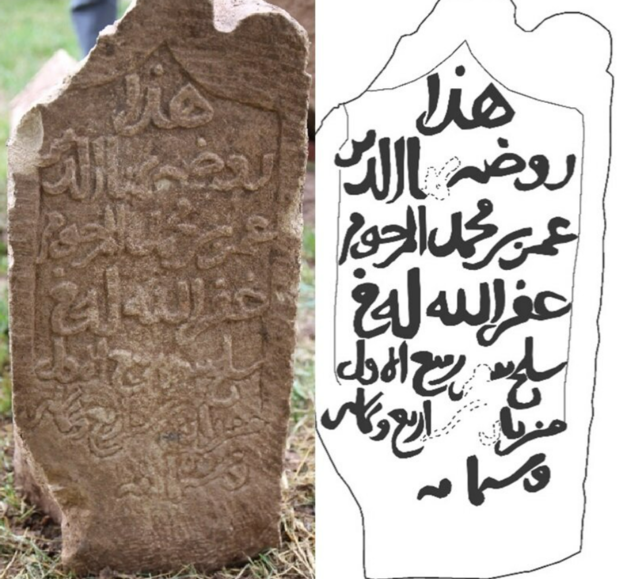 هذا
روضه الدين
عمر بن محمد المرحوم
غفر الله له في
سلخ ربيع الاول
من اربع
وستمايه